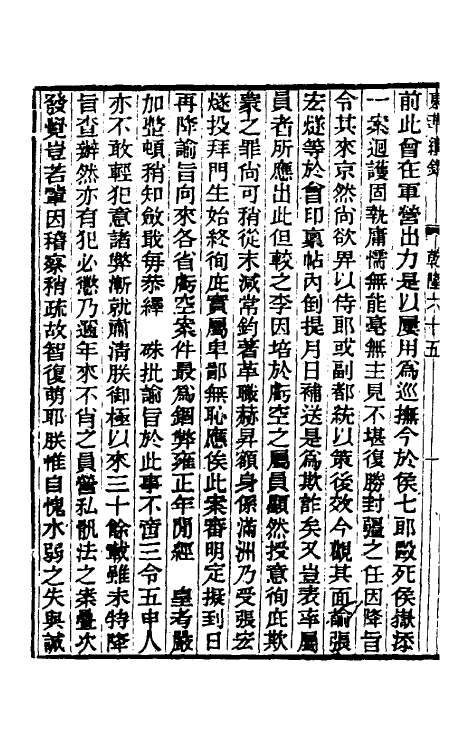 東華續錄 乾隆六十五 一
前此曾在軍營出力是以屢用為巡撫今於侯七耶毆死侯嶽添
一案迴護固執庸懦無能毫無主見不堪復勝封疆之任因降旨
令其來京然尚欲畀以侍耶或副都統以策後效今觀其面諭張
宏燧等於會印稟帖內倒提月日補送是為欺詐矣又豈表率屬
員者所應出此但較之李因培於虧空之屬員顯然授意徇庇欺
蒙之罪尚可稍從末減常鈞著革職赫昇額身係滿洲乃受張宏
燧投拜門生始終徇庇實屬卑鄙無恥應俟此案審明定擬到日
再降諭旨向來各省虧空案件最為錮弊雍正年間經 皇考嚴
加整頓稍知斂戢每恭繹 硃批諭旨於此事不啻三令五申人
亦不敢輕犯意諸弊漸就肅清朕御極以來三十餘載雖未特降
旨查辦然亦有犯必懲乃邇年來不肖之員營私骫法之案疊次
發覺豈若輩因稽察稍疏故智復萌耶朕惟自愧水弱之失與誠